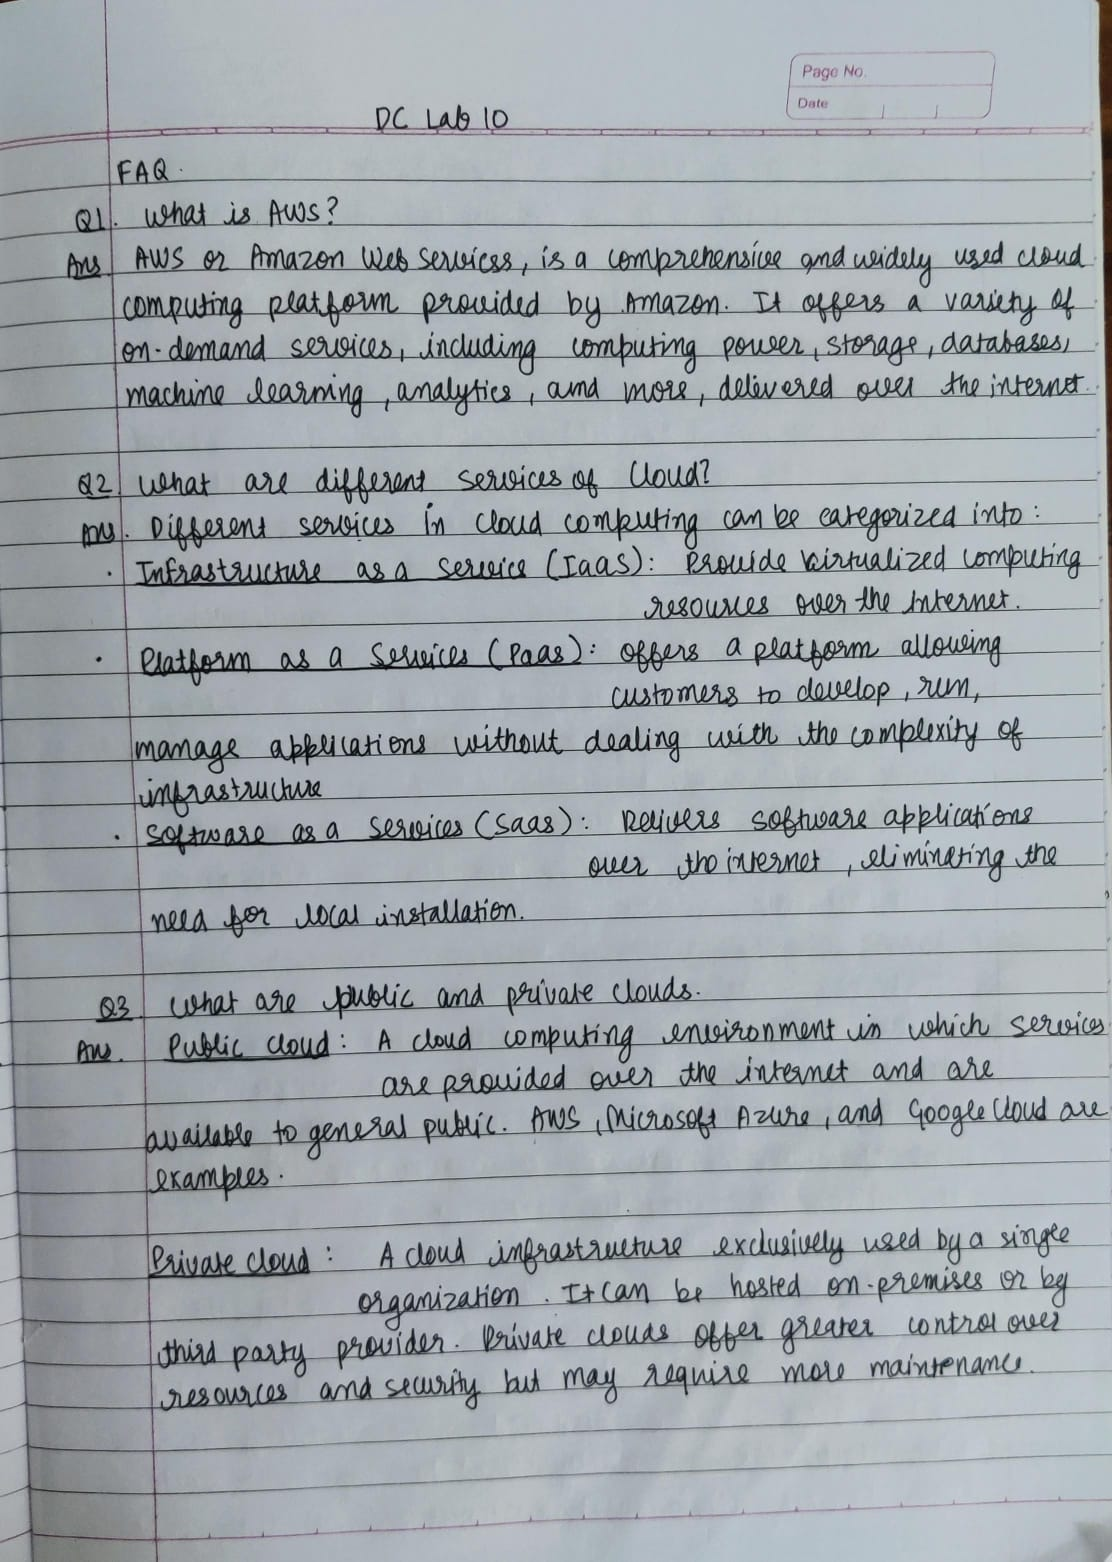 Page No.
Date
DC Lab 10
FAQ.
Q1. What is AWS?
Ans AWS or Amazon Web Services, is a comprehensive and widely used cloud
computing platform provided by Amazon. It offers a variety of
on-demand services, including computing power, storage, databases,
machine learning, analytics, and more, delivered over the internet.
Q2 What are different services of Cloud?
Ans. Different services in cloud computing can be categorized into:
· Infrastructure as a service (IaaS): Provide virtualized computing
resources over the Internet.
· Platform as a Services (Paas): offers a platform allowing
customers to develop, run,
manage applications without dealing with the complexity of
infrastructure
· Software as a Services (Saas): Delivers software applications
over the internet, eliminating the
need for local installation.
Q3 What are public and private clouds.
Ans. Public cloud: A cloud computing environment in which services
are provided over the internet and are
available to general public. AWS, Microsoft Azure, and Google Cloud are
examples.
Private cloud: A cloud infrastructure exclusively used by a single
organization. It can be hosted on-premises or by
third party provider. Private clouds offer greater control over
resources and security but may require more maintenance.